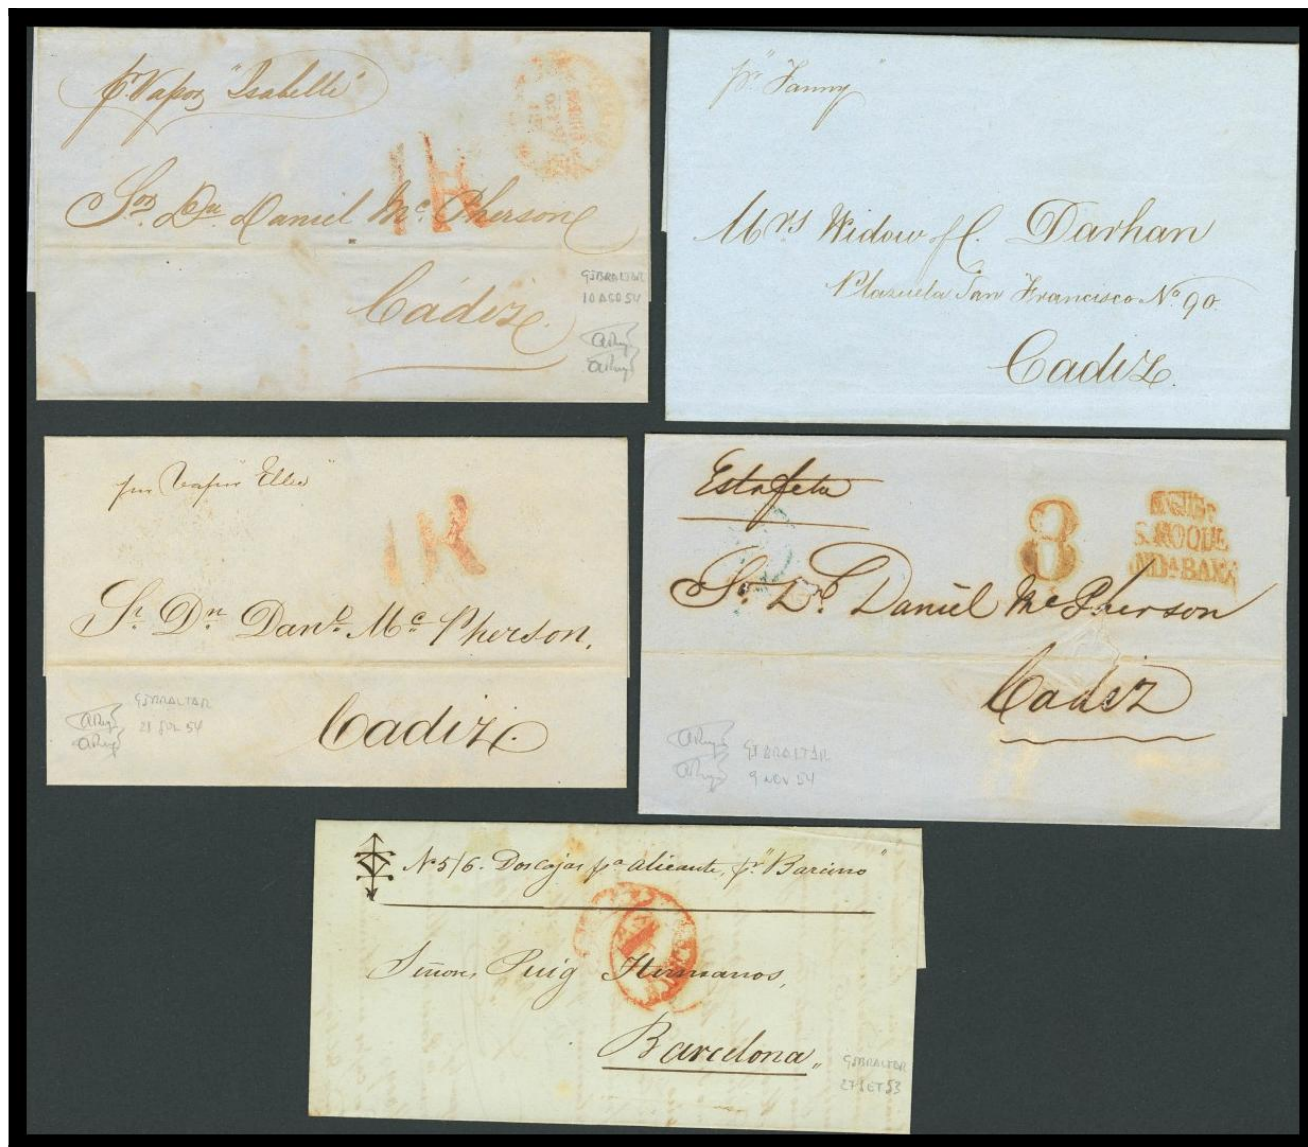 pr. Vapor "Isabella"
1R
Sor. Dn. Daniel Mc.Pherson
Cádiz.
GIBRALTAR
10 AGO 54
pr "Fanny"
Mrs Widow of C. Darhan
Plazuela San Francisco No 90.
Cadiz.
por Vapor
1R
Sr. Dn. Danl. Mc. Pherson.
Cadiz
GIBRALTAR
54
Estafeta
8
S. ROQUE
ANDA BAXA
Sr. Dn. Daniel Mc Pherson
Cadiz
GIBRALTAR
9 NOV 54
No 5/6. Dos cajas pa Alicante, pr. "Barcino"
Señores Puig Hermanos,
Barcelona.,
GIBRALTAR
27 SET 53